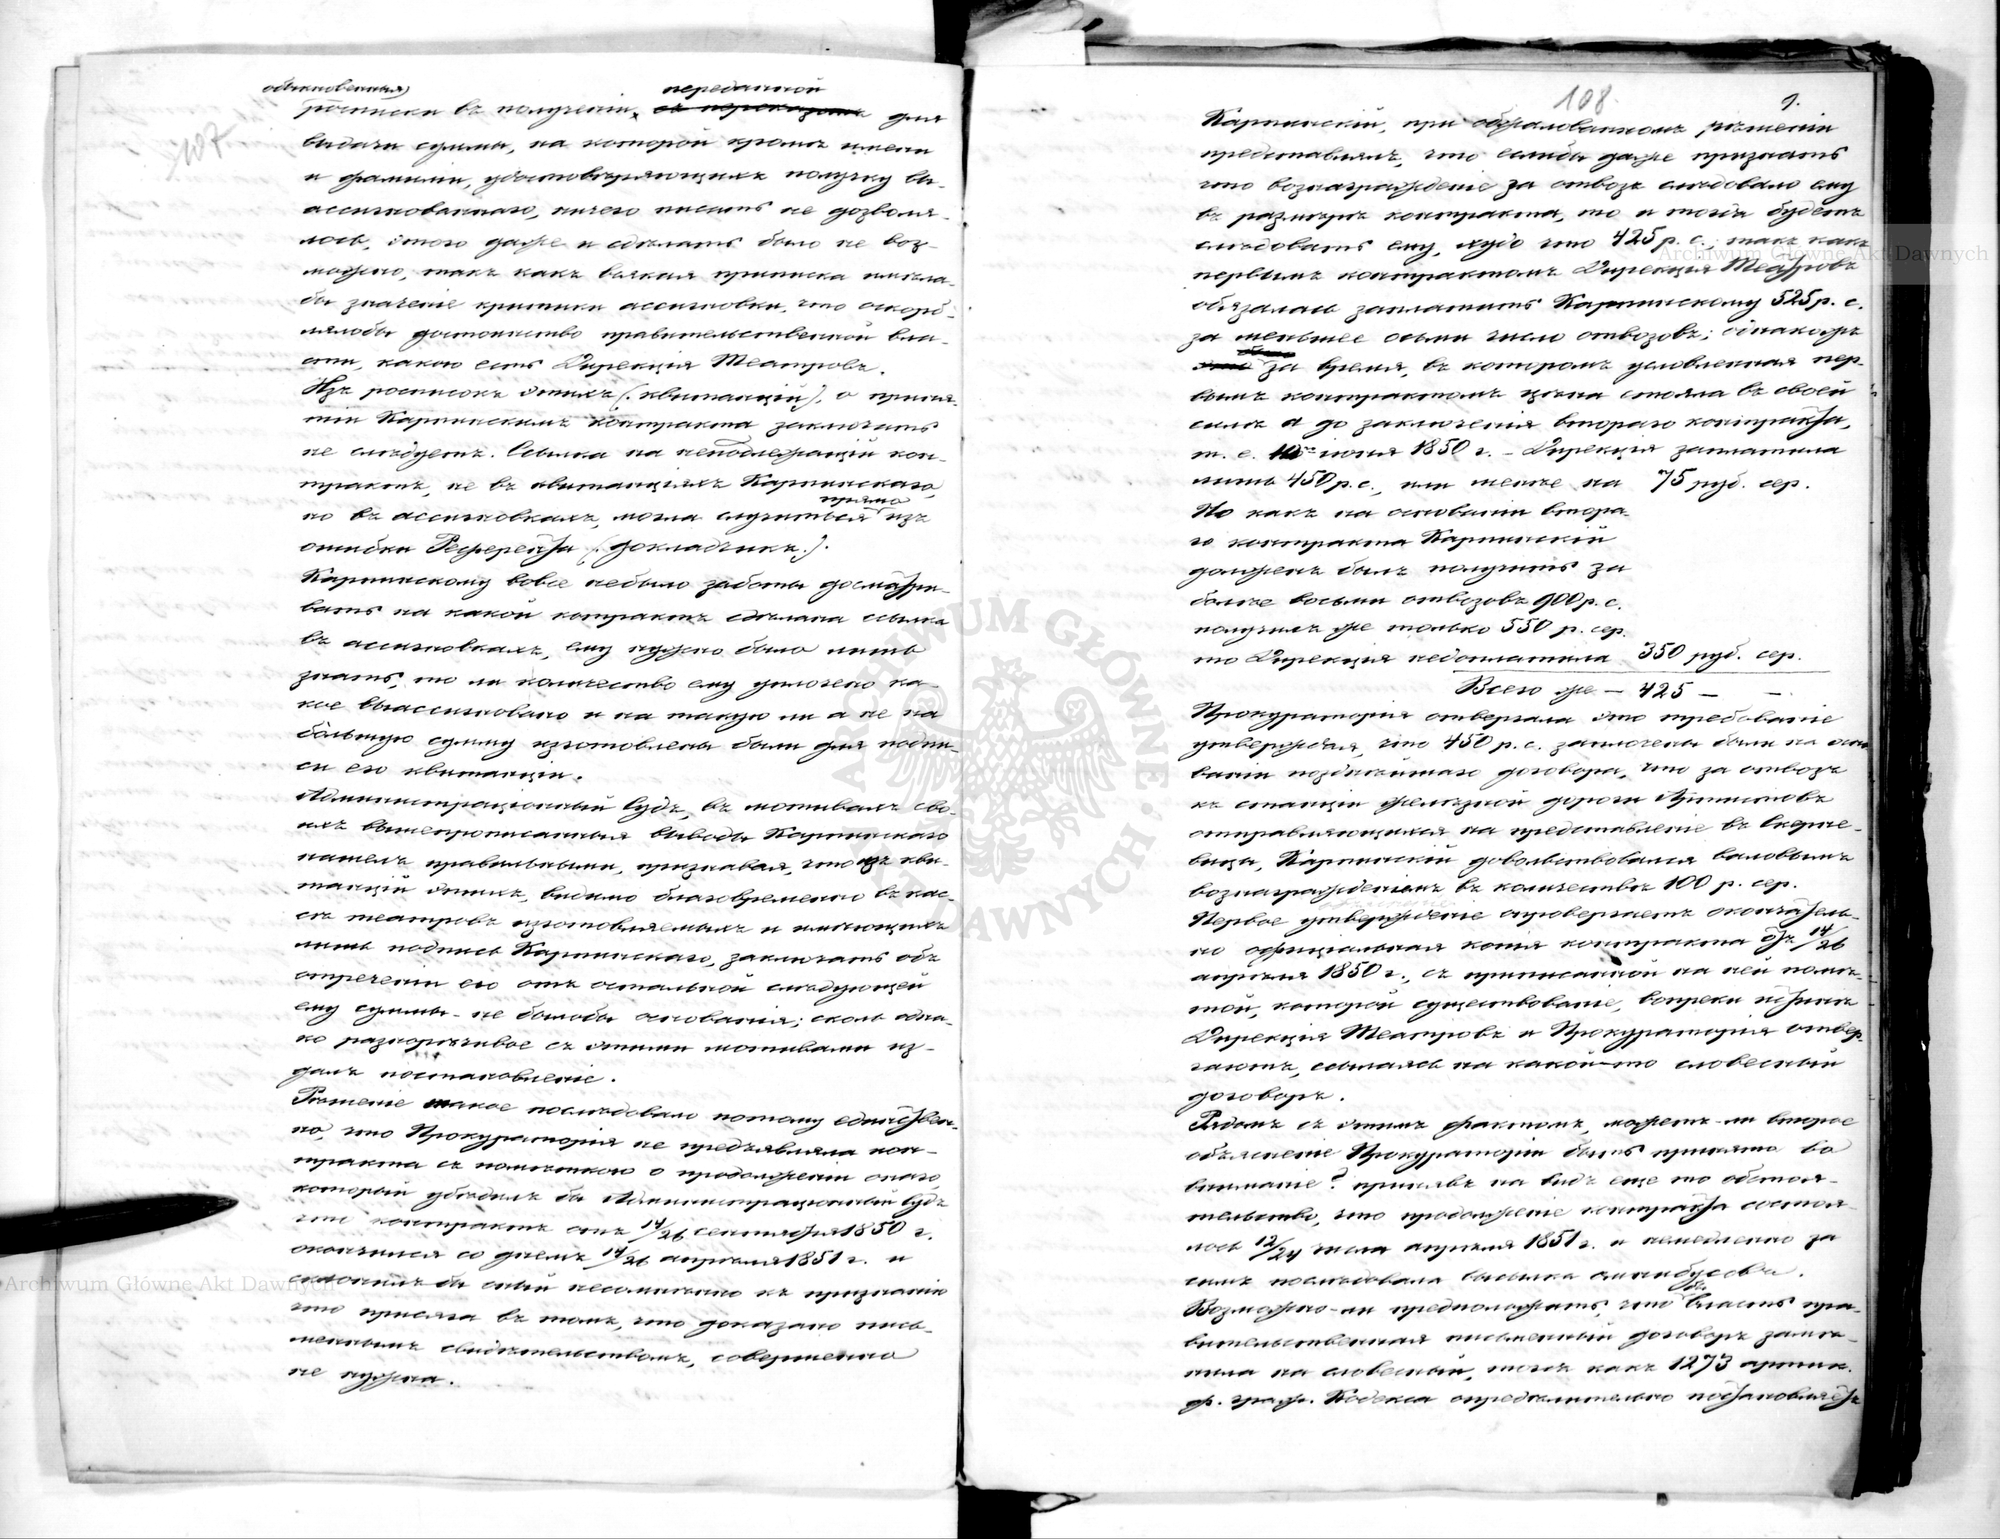 107
обыкновенная) переданной
росписка въ полученіи, съ переказомъ для
выдачи суммы, на которой кромѣ имени
и фамиліи, удостовѣряющихъ получку вы-
ассигнованнаго, ничего писать не дозволя-
лось, этого даже и сдѣлать было не воз-
можно, такъ какъ всякая приписка имѣла-
бы значеніе критики ассигновки, что оскорб-
лялобы достоинство правительственной вла-
сти, какою есть Дирекція Театровъ.
Изъ росписокъ этихъ (. квитанцій .), о приня-
тіи Карпинскимъ контракта заключать
не слѣдуетъ. Ссылка на неподлежащій кон-
трактъ, не въ квитанціяхъ Карпинскаго,
прямо
но въ ассигновкахъ, могла случиться изъ
ошибки Референта (. докладчика .).
Карпинскому вовсе небыло заботы досматри-
вать на какой контрактъ сдѣлана ссылка
въ ассигновкахъ, ему нужно было лишь
знать, то ли количество ему уплочено ка-
кое выассигновано и на такую ли а не на
большую сумму изготовлены были для подпи-
си его квитанціи.
Административный Судъ, въ мотивахъ сво-
ихъ вышепрописанныя выводы Карпинскаго
нашелъ правильными, признавая, что изъ кви-
танцій этихъ, видимо благовременно въ кас-
сѣ театровъ изготовляемыхъ и имѣющихъ
лишь подпись Карпинскаго, заключать объ
отреченіи его отъ остальной слѣдующей
ему суммы - не былобы основанія; сколь одна-
ко разнорѣчивое съ этими мотивами из-
далъ постановленіе.
Рѣшеніе такое послѣдовало потому единствен-
но, что Прокураторія не предъявляла кон-
тракта съ помѣткою о продолженіи онаго,
который убѣдилъ бы Административный Судъ
что контрактъ отъ 14/26 сентября 1850 г.
окончился со днемъ 14/26 апрѣля 1851 г. и
склонилъ бы оный несомнѣнно къ признанію
что присяга въ томъ, что доказано пись-
меннымъ свидѣтельствомъ, совершенно
не нужна.
108. 9.
Карпинскій, при обжалованномъ рѣшеніи
представлялъ, что еслибы даже признать
что вознагражденіе за отвозъ слѣдовало ему
въ размѣрѣ контракта, то и тогда будетъ
слѣдовать ему, худо что 425 р. с., такъ какъ
первымъ контрактомъ Дирекція Театровъ
обязалась заплатить Карпинскому 525 р. с.
за меньшее осьми число отвозовъ; однакожъ
за время, въ которомъ условленная пер-
вымъ контрактомъ цѣна стояла въ своей
силѣ а до заключенія втораго контракта,
т. е. іюня 1850 г. - Дирекція заплатила
лишь 450 р. с., или менѣе на 75 руб. сер.
Но какъ на основаніи втора-
го контракта Карпинскій
долженъ былъ получить за
болѣе восьми отвозовъ 900 р. с.
получилъ же только 550 р. сер.
то Дирекція недоплатила 350 руб. сер.
Всего же — 425 — —
Прокураторія отвергала это требованіе
утверждая, что 450 р. с. заплочены были на осно
ваніи позднѣйшаго договора, что за отвозъ
къ станціи желѣзной дороги Артистовъ
отправляющихся на представленіе въ Скерне-
вицы, Карпинскій довольствовался валовымъ
вознагражденіемъ въ количествѣ 100 р. сер.
Первое утвержденіе опровергаетъ окончатель-
но офиціальная копія контракта отъ 14/26
апрѣля 1850 г., съ приписанной на ней помѣт-
той, которой существованіе, вопреки
Дирекція Театровъ и Прокураторія отвер-
гаютъ, ссылаясь на какой-то словесный
договоръ.
Рядомъ съ этимъ фактомъ, можетъ-ли второе
объясненіе Прокураторіи быть принято во
вниманіе? принявъ на видъ еще то обстоя-
тельство, что продолженіе контракта состоя-
лось 12/24 числа апрѣля 1851 г. и немедленно за
симъ послѣдовала высылка омнибусовъ.
бы
Возможно-ли предполагать, что власть пра-
вительственная письменный договоръ замѣ-
нила на словесный, тогда какъ 1273 артик.
гр. Кодекса опредѣлительно постановляетъ